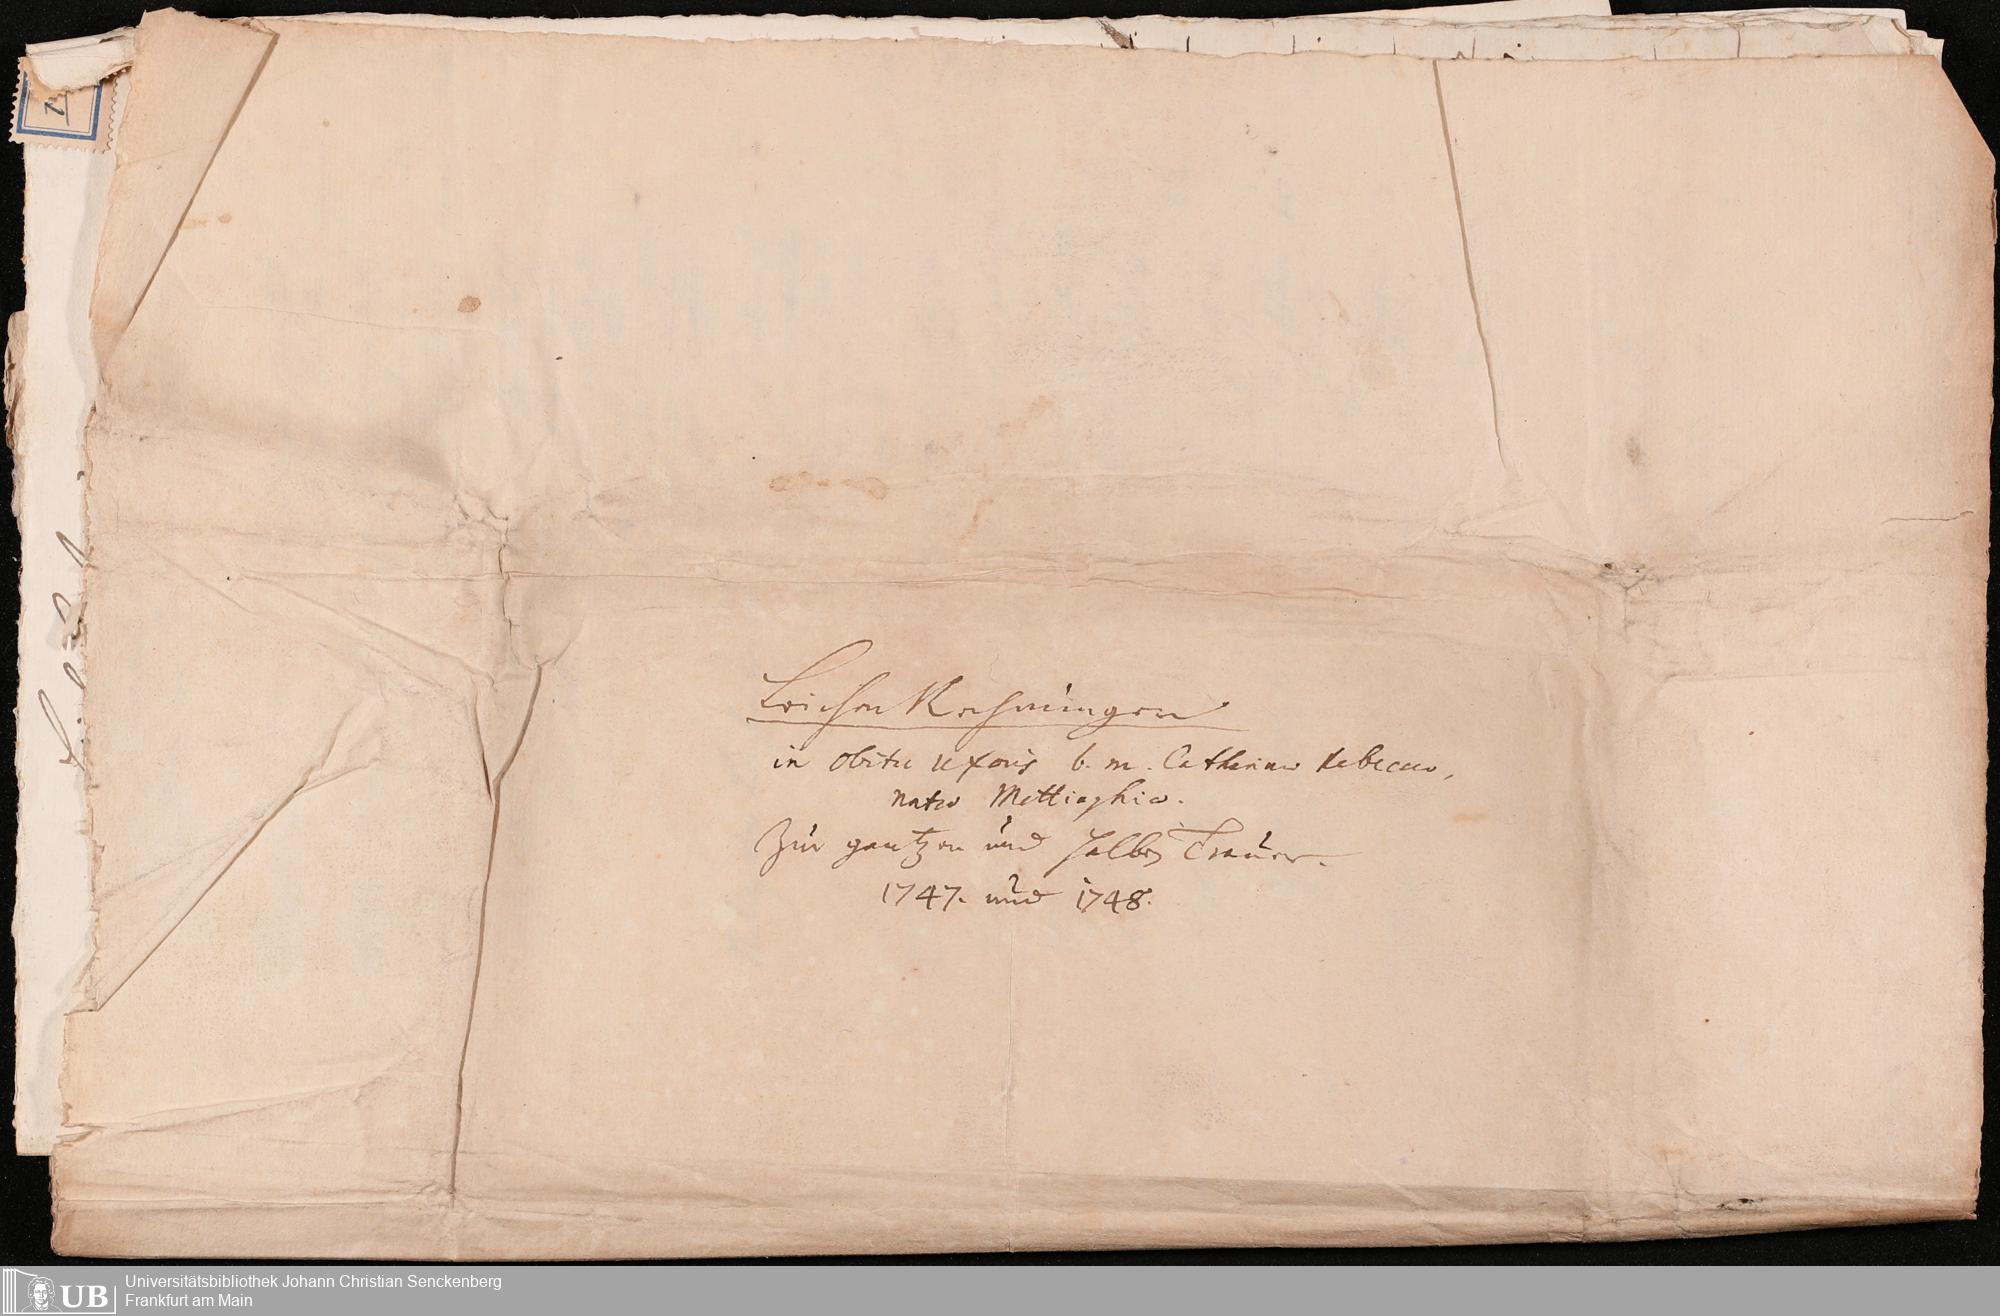 Leichen Rechnungen
in obitu uxoris b. m. Catharinae Rebeccae,
natae Mettinghiae.
Zur gantzen und halben Trauer.
1747. und 1748.
UB
Universitätsbibliothek Johann Christian Senckenberg
Frankfurt am Main